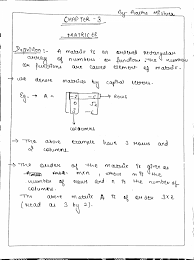 By Radhe Mishra
CHAPTER - 3
MATRICES
Definition :- A matrix is an ordered rectangular
array of numbers or function the number
or functions are called element of matrix.
→ We denote matrices by capital letters.
Eg. → A =
→ rows
columns
→ The above example have 3 rows and
2 columns.
→ The order of the matrix is given as
m×n, where m is the
number of rows and n is the number of
columns.
The above matrix A is of order 3×2
(read as 3 by 2).